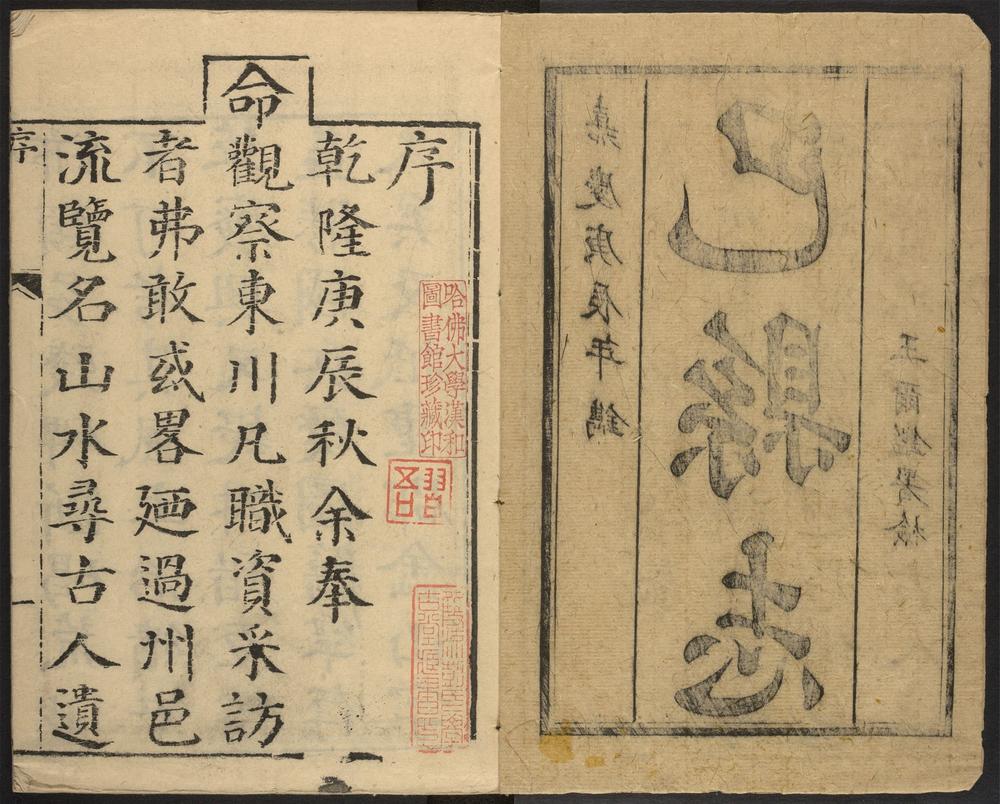 王爾鑑
巴縣志
嘉慶庚辰年鐫
序
乾隆庚辰秋余奉
命觀察東川凡職資采訪
者弗敢或畧廼過州邑
流覽名山水尋古人遺
序
哈佛大學漢和
圖書館珍藏印